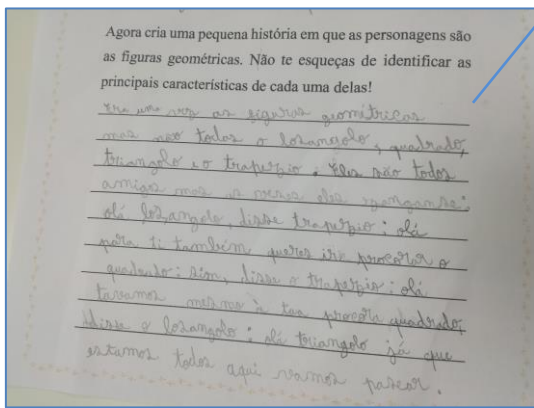 Agora cria uma pequena história em que as personagens são
as figuras geométricas. Não te esqueças de identificar as
principais características de cada uma delas!
Era uma vez as figuras geométricas
mas não todas o losangolo, quadrado,
triangolo e o traperzio: Eles são todos
amigos mas as vezes eles zanganse:
olá losangolo, disse traperzio: olá
para ti também queres ir procorar o
quadrado: sim, disse o traperzio: olá
tavamos mesmo à tua procora quadrado,
disse o losangolo: olá triangolo já que
estamos todos aqui vamos pasear.